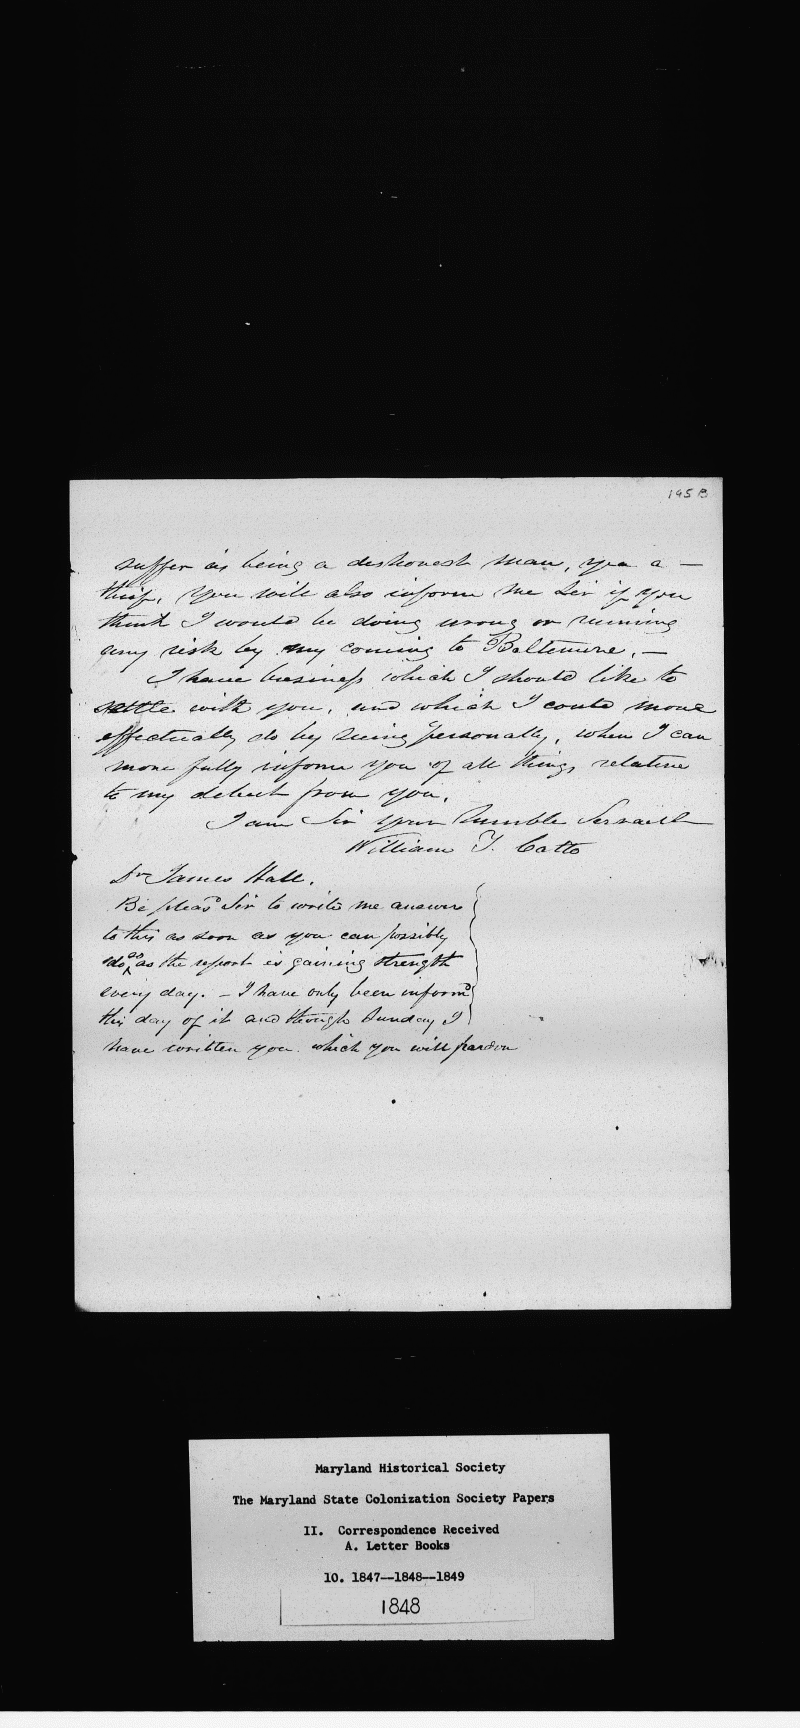 195 B
suffer as being a dishonest man, yea a —
thief, You will also inform me Sir if you
think I would be doing wrong or running
any risk by my coming to Baltimore. —
I have business which I should like to
settle with you, and which I could more
effectually do by seeing personally, when I can
more fully inform you of all things relative
to my debt from you.
I am Sir your humble Servant
William T. Catto
Dr James Hall.
Be pleasd Sir to write me answer
to this as soon as you can possibly
do so as the report is gaining strength
every day. — I have only been informd
this day of it and though Sunday I
have written you which you will pardon
Maryland Historical Society
The Maryland State Colonization Society Papers
II. Correspondence Received
A. Letter Books
10. 1847--1848--1849
1848